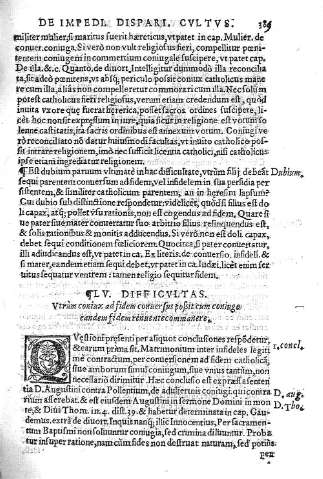 DE IMPEDI. DISPARI. CVLTVS. 389
militer mulier, si maritus fuerit hæreticus, vt patet in cap. Mulier. de
conuer. coniug. Si verò non vult religiosus fieri, compellitur pœni-
tentem coniugem in commertium coniugale suscipere, vt patet cap.
De illa. & c. Quanto, de diuort. Intelligitur dummodò illa reconcilia
ta, sic adeò pœnitens, vt absq; periculo possit coniux catholicus mane
re cum illa, aliàs non compelleretur commorari cum illa. Nec solùm
potest catholicus fieri religiosus, verùm etiam credendum est, quòd
inuita vxore quæ fuerat hæretica, posset sacros ordines suscipere, li-
cèt hoc non sit expressum in iure, quia sicut in religione est votum so
lenne castitatis, ita sacris ordinibus est annexum votum. Coniugi ve
rò reconciliato nõ datur huiusmodi facultas, vt inuito catholico pos-
sit intrare religionem, imò nec sufficit licentia catholici, nisi catholicus
ipse etiam ingrediatur religionem.
¶ Est dubium paruum vltimatè in hac difficultate, vtrùm filij debeãt Dubium.
sequi parentem conuersum ad fidem, vel infidelem in sua perfidia per
sistentem, & similiter catholicum parentem, an in hæresim lapsum?
Cui dubio sub distinctione respondetur: videlicèt, quòd si filius est do
li capax, atq; pollet vsu rationis, non est cogendus ad fidem, Quare si
ue pater siue mater conuertatur suo arbitrio filius relinquendus est,
& solis rationibus & monitis addiscendus. Si verò non est doli capax,
debet sequi conditionem fœlicìorem. Quocirca, si pater conuertatur,
illi adiudicandus est, vt patet in ca. Ex literis. de conuersio. infideli. &
si mater, eandem etiam sequi debet, vt patet in ca. Iudæi, licèt enim ser
uitus sequatur ventrem: tamen religio sequitur fidem.
¶ LV. DIFFICVLTAS.
Vtrùm coniux ad fidem conuersus possit cum coniuge
eandem fidem renuente commanere.
QVæstioni præsenti per aliquot conclusiones respõdetur,
& earum prima sit. Matrimonium inter infideles legiti 1. concl.
mè contractum, per conuersionem ad fidem catholicã,
siue amborum simul coniugum, siue vnius tantùm, non
necessariò dirimitur. Hæc conclusio est expressa senten
tia D. Augustini contra Pollentium, de adulterinis coniugijs qui contra D. aug.
rium asserebat. & est eiusdem Augustini in sermone Domini in mon
te, & Diui Thom. in 4. dist. 39. & habetur determinata in cap. Gau- D. Tho.
demus, extrà de diuort. Inquit namq; illic Innocentius, Per sacramen-
tum Baptismi non soluuntur coniugia, sed crimina diluuntur. Proba
tur insuper ratione, nam cùm fides non destruat naturam, sed potius
per